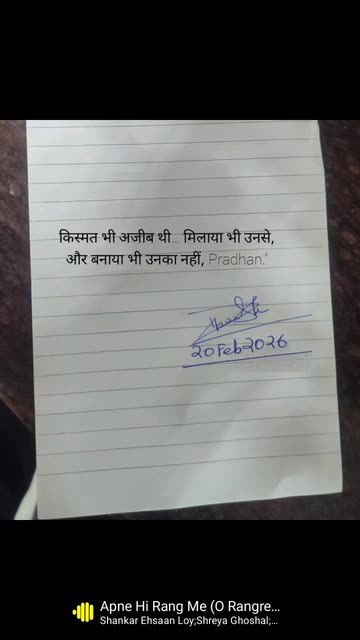 किस्मत भी अजीब थी... मिलाया भी उनसे,
और बनाया भी उनका नहीं, Pradhan."
20 Feb 2026
Apne Hi Rang Me (O Rangre...
Shankar Ehsaan Loy;Shreya Ghoshal;...